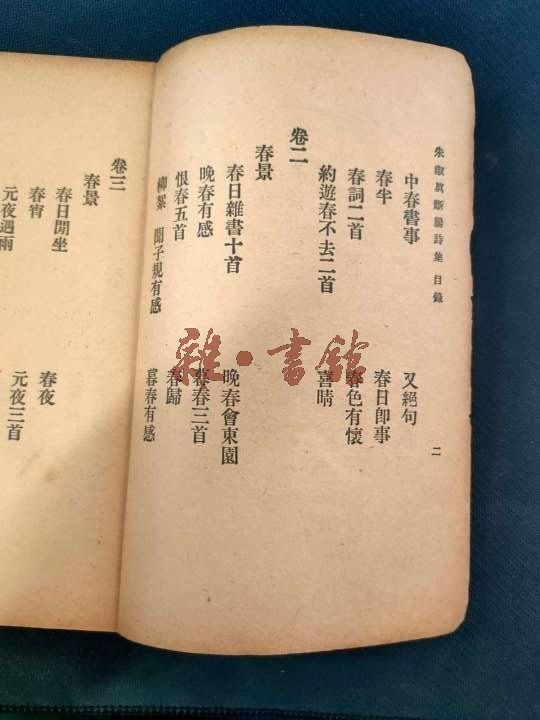 朱淑真斷腸詩集 目錄 二
中春書事 又絕句
春半 春日卽事
春詞二首 春色有懷
約遊春不去二首 喜晴
卷二
春景
春日雜書十首 晚春會東園
晚春有感 暮春三首
恨春五首 春歸
柳絮 聞子規有感 暮春有感
卷三
春景
春日閒坐
春宵 春夜
元夜遇雨 元夜三首
雜·書館